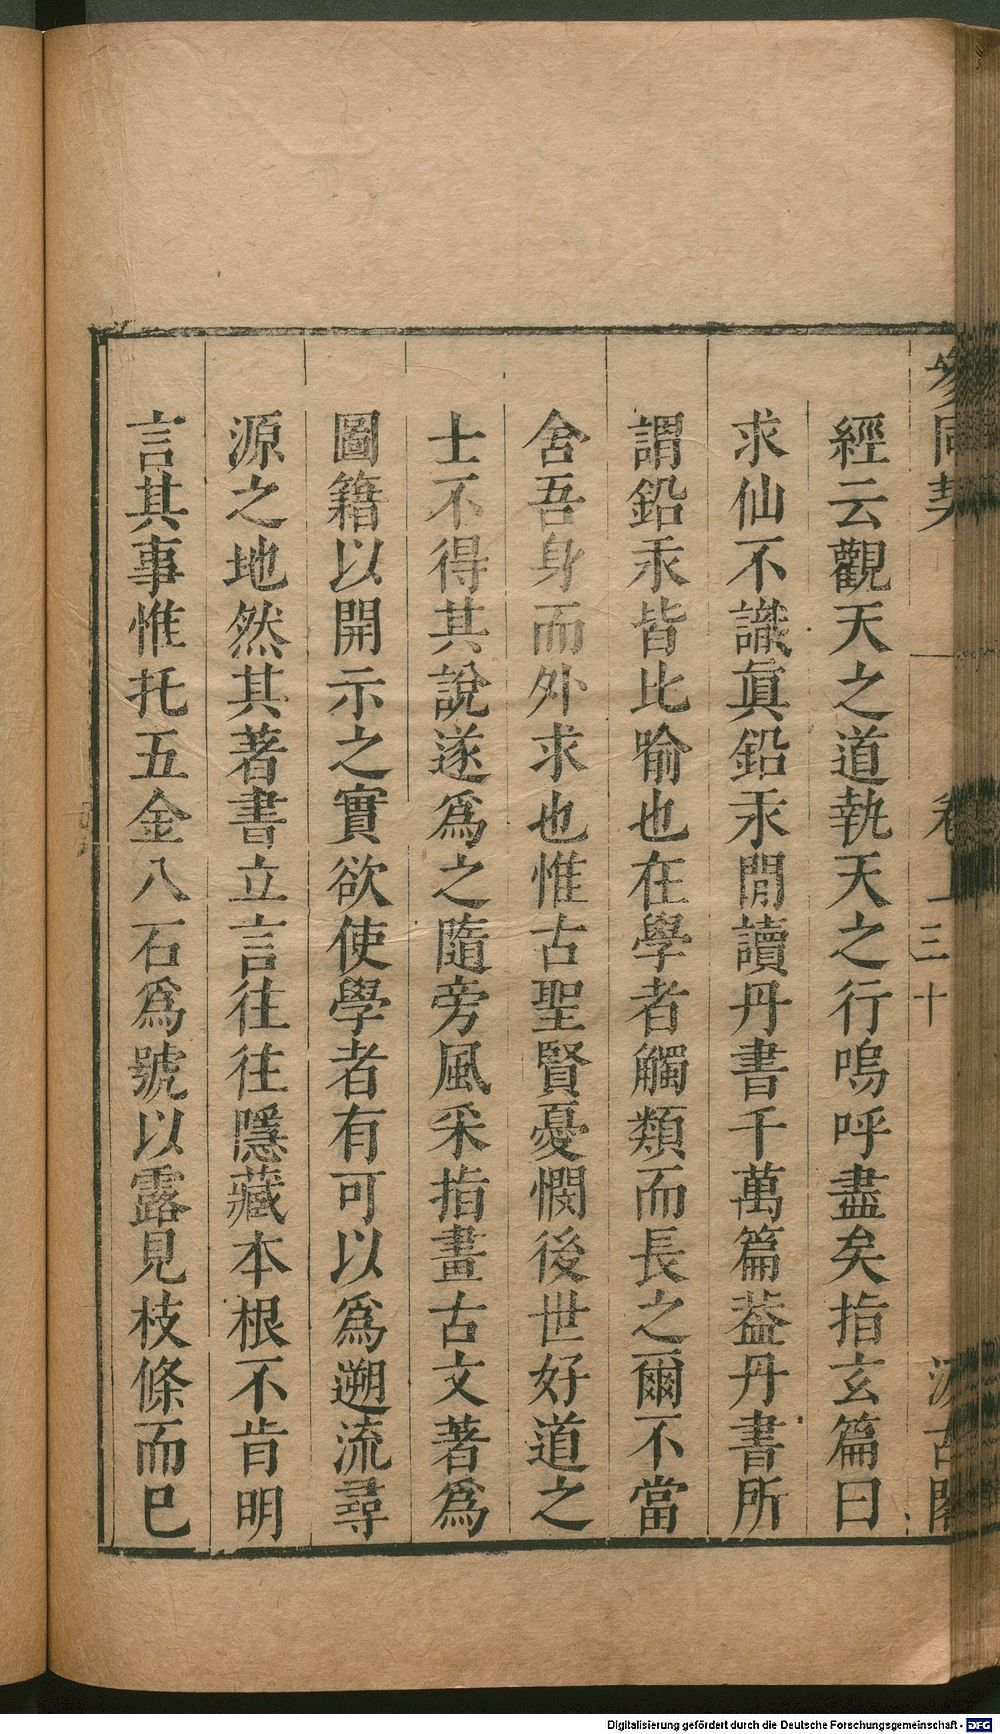 參同契 卷上 三十 汲古閣
經云觀天之道執天之行嗚呼盡矣指玄篇曰
求仙不識眞鉛汞閒讀丹書千萬篇葢丹書所
謂鉛汞皆比喻也在學者觸類而長之爾不當
舍吾身而外求也惟古聖賢憂憫後世好道之
士不得其說遂爲之隨旁風采指畫古文著爲
圖籍以開示之實欲使學者有可以爲遡流尋
源之地然其著書立言往往隱藏本根不肯明
言其事惟托五金八石爲號以露見枝條而巳
Digitalisierung gefördert durch die Deutsche Forschungsgemeinschaft - DFG